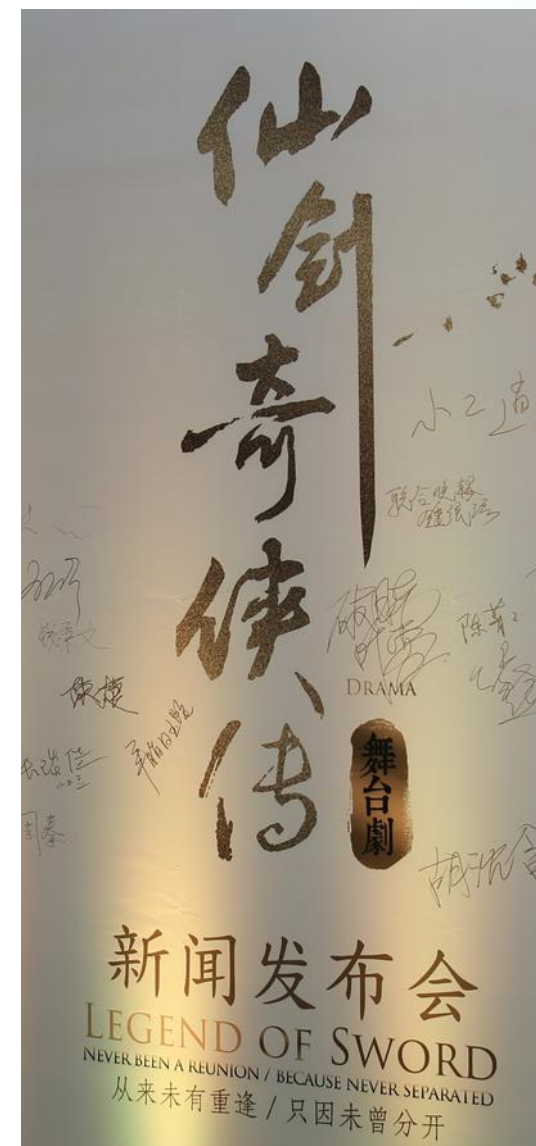 仙剑奇侠传
DRAMA
舞台劇
小二道
联合晚报
陈菁
周秦
新闻发布会
LEGEND OF SWORD
NEVER BEEN A REUNION / BECAUSE NEVER SEPARATED
从来未有重逢 / 只因未曾分开